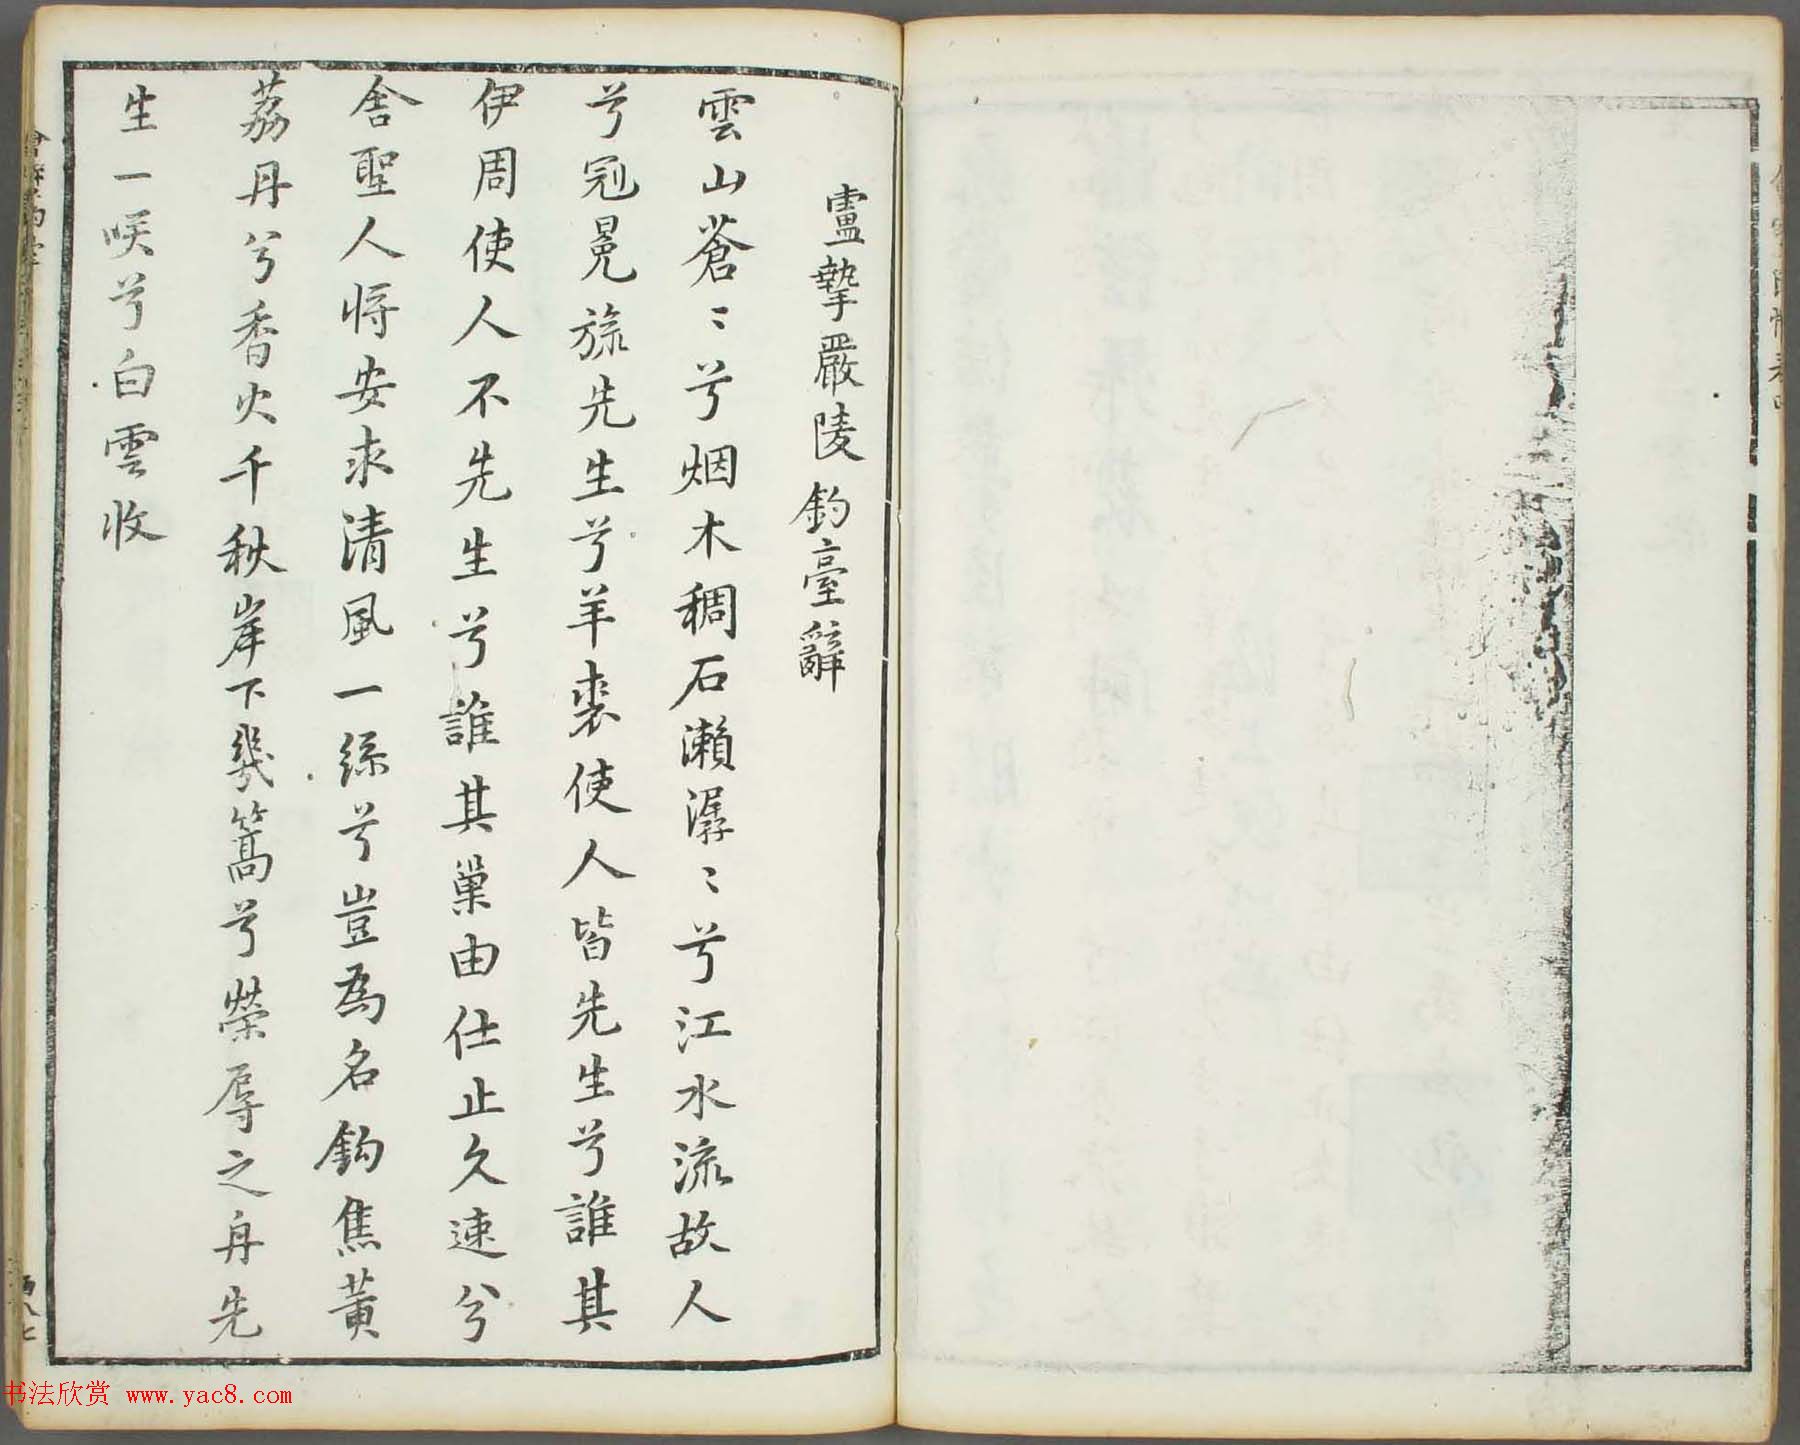 盧摯嚴陵釣臺辭
雲山蒼〻兮烟木稠石瀨潺〻兮江水流故人
兮冠冕旒先生兮羊裘使人皆先生兮誰其
伊周使人不先生兮誰其巢由仕止久速兮
舍聖人將安求清風一絲兮豈為名鈎焦黃
荔丹兮香火千秋岸下幾篙兮榮辱之舟先
生一咲兮白雲收
书法欣赏 www.yac8.com